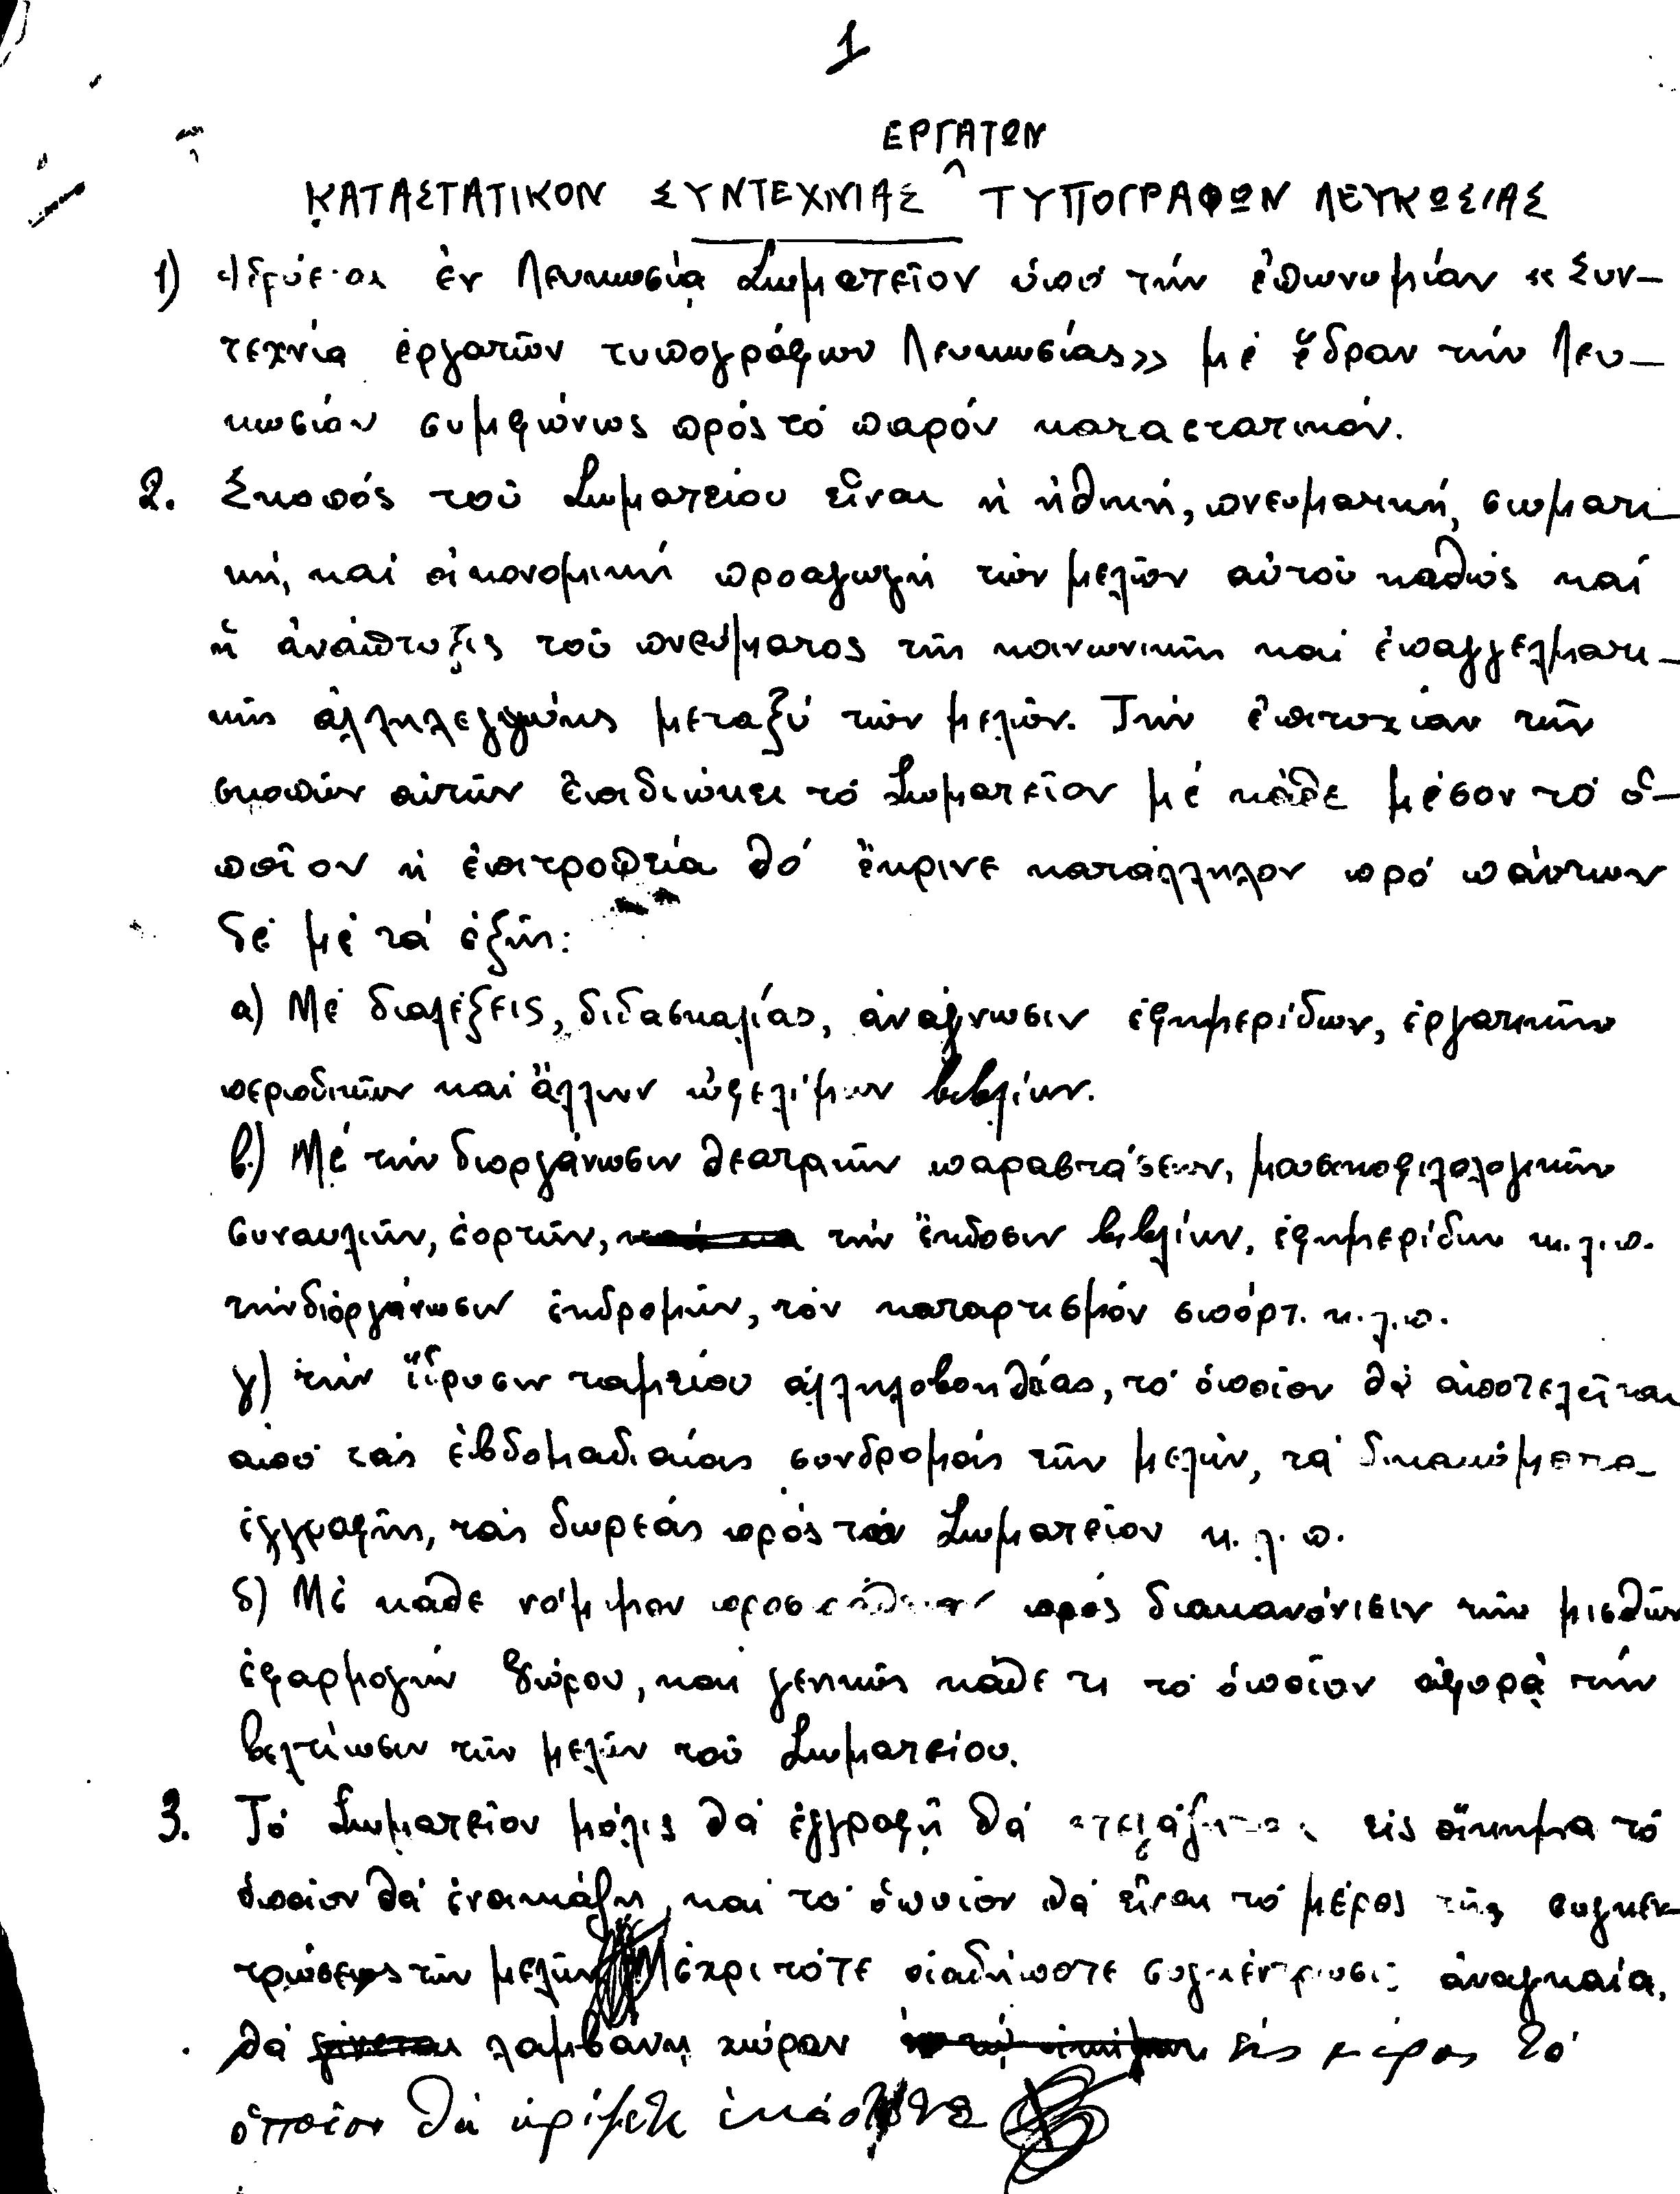 1
ΕΡΓΑΤΩΝ
ΚΑΤΑΣΤΑΤΙΚΟΝ ΣΥΝΤΕΧΝΙΑΣ ^ ΤΥΠΟΓΡΑΦΩΝ ΛΕΥΚΩΣΙΑΣ
1) Ἱδρύεται ἐν Λευκωσίᾳ Σωματεῖον ὑπό τήν ἐπωνυμίαν «Συν-
τεχνία ἐργατῶν τυπογράφων Λευκωσίας» μέ ἕδραν τήν Λευ-
κωσίαν συμφώνως πρός τό παρόν καταστατικόν.
2. Σκοπός τοῦ Σωματείου εἶναι ἡ ἠθική, πνευματική, σωματι-
κή, καί οἰκονομική προαγωγή τῶν μελῶν αὐτοῦ καθώς καί
ἡ ἀνάπτυξις τοῦ πνεύματος τῆς κοινωνικῆς καί ἐπαγγελματι-
κῆς ἀλληλεγγύης μεταξύ τῶν μελῶν. Τήν ἐπιτυχίαν τῶν
σκοπῶν αὐτῶν ἐπιδιώκει τό Σωματεῖον μέ κάθε μέσον τό ὁ-
ποῖον ἡ ἐπιτροπεία θά ἔκρινε κατάλληλον πρό πάντων
δέ μέ τά ἑξῆς:
α) Μέ διαλέξεις, διδασκαλίας, ἀνάγνωσιν ἐφημερίδων, ἐργατικῶν
περιοδικῶν καί ἄλλων ὠφελίμων βιβλίων.
β.) Μέ τήν διοργάνωσιν θεατρικῶν παραστάσεων, μουσικοφιλολογικῶν
συναυλιῶν, ἑορτῶν, τήν ἔκδοσιν βιβλίων, ἐφημερίδων κ.λ.π.
τήν διοργάνωσιν ἐκδρομῶν, τόν καταρτισμόν σπόρτ. κ.λ.π.
γ) τήν ἵδρυσιν ταμείου ἀλληλοβοηθείας, τό ὁποῖον θά ἀποτελεῖται
ἀπό τάς ἑβδομαδιαίας συνδρομάς τῶν μελῶν, τά δικαιώματα
ἐγγραφῆς, τάς δωρεάς πρός τό Σωματεῖον κ.λ.π.
δ) Μέ κάθε νόμιμον προσπάθειαν πρός διακανόνισιν τῶν μισθῶν
ἐφαρμογήν 8ώρου, καί γενικῶς κάθε τι τό ὁποῖον ἀφορᾷ τήν
βελτίωσιν τῶν μελῶν τοῦ Σωματείου.
3. Τό Σωματεῖον μόλις θά ἐγγραφῇ θά στεγάζεται εἰς οἴκημα τό
ὁποῖον θά ἐνοικιάζῃ, καί τό ὁποῖον θά εἶναι τό μέρος τῆς συγκεν-
τρώσεως τῶν μελῶν Μέχρι τότε οἱαδήποτε συγκέντρωσις ἀναγκαία,
θά γίνεται λαμβάνῃ χώραν εἰς μέρος τό
ὁποῖον θά κρίνεται ἑκάστοτε